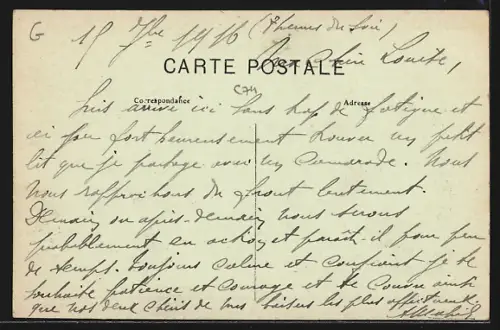 G 15 7bre 1916 (7 heures du soir)
Ma chère Louise,
CARTE POSTALE
C74
Correspondance
Adresse
Suis arrivé ici sans trop de fatigue et
ai pu fort heureusement trouver un petit
lit que je partage avec un camarade. Nous
nous rapprochons du front lentement.
Demain ou après-demain nous serons
probablement en action et paraît-il pour peu
de temps. Toujours calme et confiant je te
souhaite patience et courage et te couvre ainsi
que nos deux chéris de mes baisers les plus affectueux